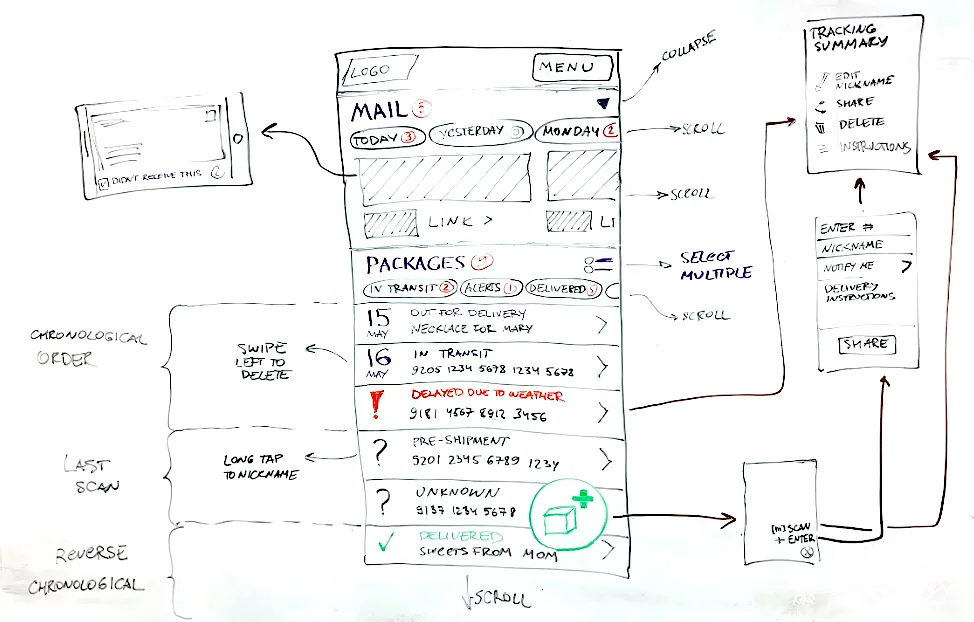 LOGO
MENU
COLLAPSE
MAIL 5
TODAY 3
YESTERDAY
MONDAY 2
SCROLL
SCROLL
LINK >
LI
DIDN'T RECEIVE THIS
PACKAGES
SELECT
MULTIPLE
IN TRANSIT 2
ALERTS 1
DELIVERED
SCROLL
15
MAY
OUT FOR DELIVERY
NECKLACE FOR MARY
16
MAY
IN TRANSIT
9205 1234 5678 1234 5678
! DELAYED DUE TO WEATHER
9181 4567 8912 3456
? PRE-SHIPMENT
9201 2345 6789 1234
? UNKNOWN
9137 1234 5678
DELIVERED
SWEETS FROM MOM
SCROLL
CHRONOLOGICAL
ORDER
SWIPE
LEFT TO
DELETE
LAST
SCAN
LONG TAP
TO NICKNAME
REVERSE
CHRONOLOGICAL
TRACKING
SUMMARY
EDIT
NICKNAME
SHARE
DELETE
INSTRUCTIONS
ENTER #
NICKNAME
NOTIFY ME
DELIVERY
INSTRUCTIONS
SHARE
[m] SCAN
+ ENTER